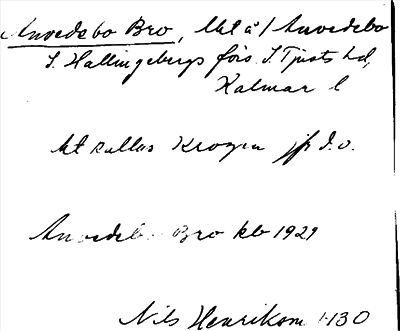 Anvedebo Bro, lht å / Anvedebo
S. Hallingebergs förs. S. Tjusts hd,
Kalmar l
lht kallas Krogen jfr d.o.
Anvedebo Bro kb 1929
Nils Henrikson 1130